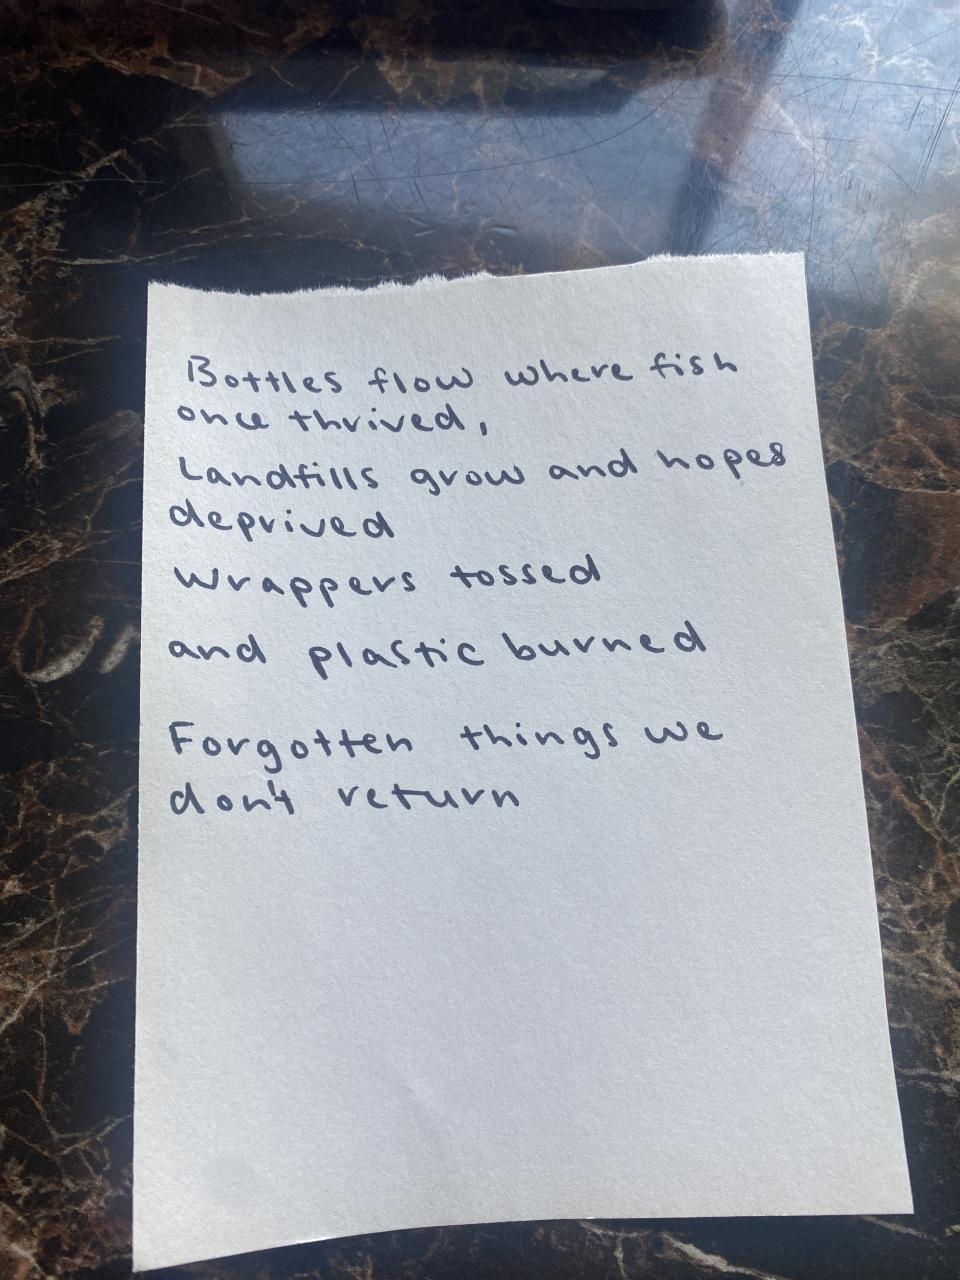 Bottles flow where fish
once thrived,
Landfills grow and hopes
deprived
Wrappers tossed
and plastic burned
Forgotten things we
don't return